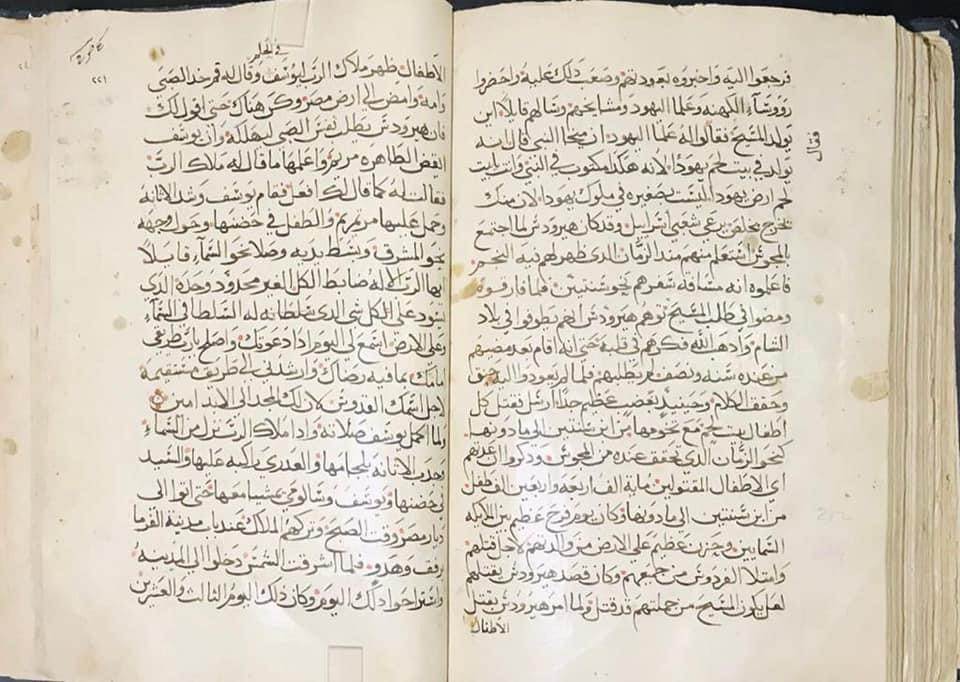 فرجعوا اليه واخبروه بعودتهم وصعب ذلك عليه واحضروا
رووساء الكهنه وعلما اليهود ومشايخهم وسالهم قايلا اين
يولد المسيح فقالو له علما اليهود ان ميخا النبي قال انه
يولد في بيت لحم يهودا لانه هكذا مكتوب في النبي وانت يابيت
لحم ارض يهودا لست صغيره في ملوك يهودا لان منك
يخرج مخلص يرعي شعبي اسراييل وقد كان هيرودس لما اجتمع
بالمجوس استعلم منهم مند الزمان الدي ظهر لهم فيه النجم
فاعلموه انه مسافة سفرهم نحو سنتين فلما فارقوه
ومضوا في طلب المسيح توهم هيرودس انهم يطوفوا في بلاد
الشام وادهل الله فكرهم في قلبه حتى انه اقام بعد مضيهم
من عنده سنه ونصف لم يطلبهم فلما لم يعودوا اليه حنق
وحقق الكلام وحينيد بغضب عظيم جدا ارسل فقتل كل
اطفال بيت لحم مع تخومها من ابن سنتين الى ما دونها
كنحو الزمان الدي تحقق عنده من المجوس ودكروا ان عدتهم
اي الاطفال المقتولين ماية الف اربعة واربعين الف طفل
من ابن سنتين الى ما دونها وكان يوم فرح عظيم بين الملايكه
السمايين وحزن عظيم على الارض من والدتهم لاجل قتلهم
وامتلا الفردوس من جميعهم وكان قصد هيرودس بقتلهم
لعل يكون المسيح من جملتهم قد قتل ولما امر هيرودس بقتل
الاطفال
فقال
٢٢١
الاطفال ظهر ملاك الرب ليوسف وقال له قم خد الصبي
وامه وامض الى ارض مصر وكن هناك حتى اقول لك
فان هيرودس يطلب نفس الصبي ليهلكه وان يوسف
ايقض الطاهره مريم واعلمها ما قال له ملاك الرب
فقالت له كما قال لك افعل فقام يوسف وشد الاتانه
وحمل عليها مريم والطفل في حضنها وحول وجهه
نحو المشرق وبسط يديه وصلا نحو السماء قايلا
ايها الرب الاله ضابط الكل الغير محدود وحده الدي
يسود على الكل شي الدي سلطانه له السلطا في السماء
وعلى الارض استمع لي اليوم ادا دعوتك واصلح بان طريقي
امامك بما فيه رضاك وارشدني الى طريق مستقيمة
لاجل اسمك القدوس لان لك المجد الى الابد امين
ولما اكمل يوسف صلاته وادا ملاك الرب نزل من السماء
وجدب الاتانه بلجامها والعدرى راكبه عليها والسيد
في حضنها ويوسف وسالومي يمشيا معها حتى اتوا الى
ديار مصر وقت الصبح وتركهم الملاك عند باب مدينة الفرما
برفق وهدو فلما اشرقت الشمس دخلوا الى المدينه
واستراحوا دلك اليوم وكان دلك اليوم الثالث والعشرين